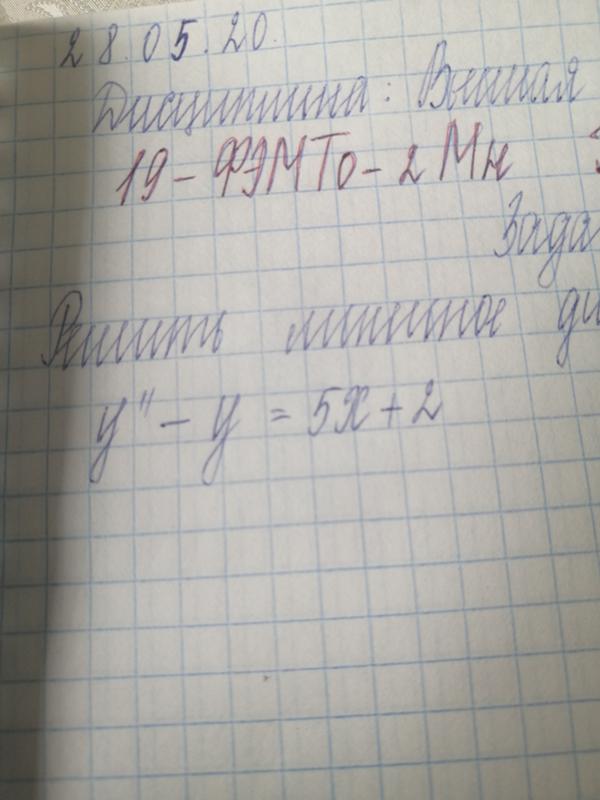 28.05.20.
Дисциплина: Высшая
19-ФЭМТо-2Мн
Зада
Решить линейное ди
y" - y = 5x + 2